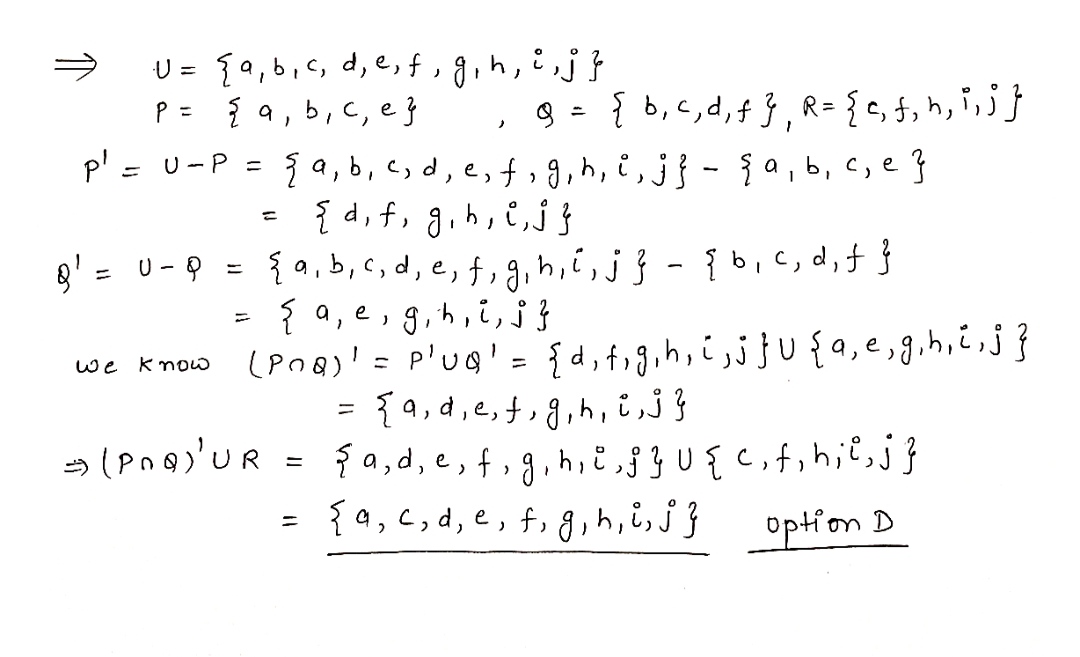 ⇒ U = {a,b,c, d,e,f, g,h, i,j}
P = {a, b, c, e} , Q = {b,c,d,f}, R = {c,f,h,i,j}
P' = U - P = {a, b, c, d, e, f, g,h, i, j} - {a, b, c, e}
= {d, f, g, h, i, j}
Q' = U - Q = {a, b, c, d, e, f, g, h, i, j} - {b, c, d, f}
= {a, e, g, h, i, j}
we know (P∩Q)' = P'∪Q' = {d,f,g,h,i,j} ∪ {a,e,g,h,i,j}
= {a,d,e,f,g,h,i,j}
⇒ (P∩Q)'∪R = {a,d,e,f,g,h,i,j} ∪ {c,f,h,i,j}
= {a, c, d, e, f, g, h, i, j} option D